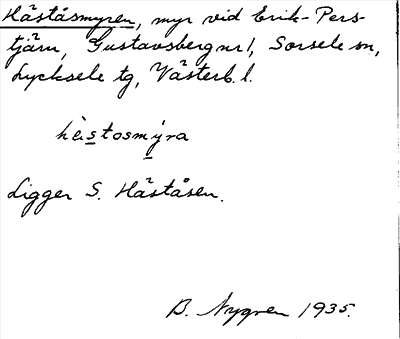 Häståsmyren, myr vid Erik-Pers-
tjärn, Gustavsberg nr 1, Sorsele sn,
Lycksele tg, Västerb. l.
hèstosmýra
Ligger S. Häståsen.
B. Nygren 1935.